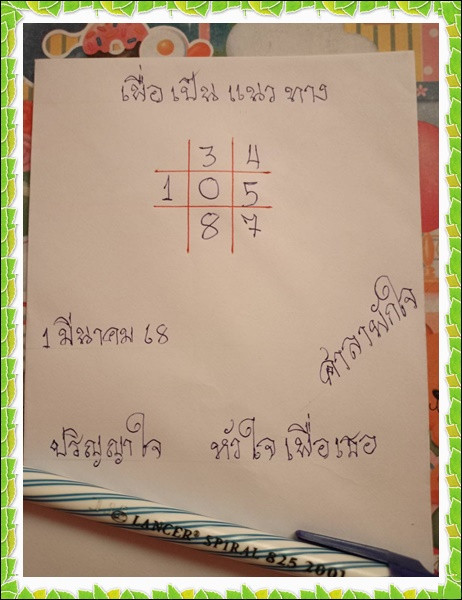 เพื่อ เป็น แนว ทาง
3 4
1 0 5
8 7
ศาลาพักใจ
1 มีนาคม 68
ปริญญาใจ หัวใจ เพื่อเธอ
LANCER SPIRAL 825 2001